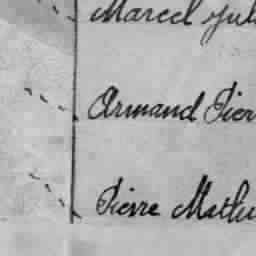 Marcel Jul
Armand Pier
Pierre Mathu